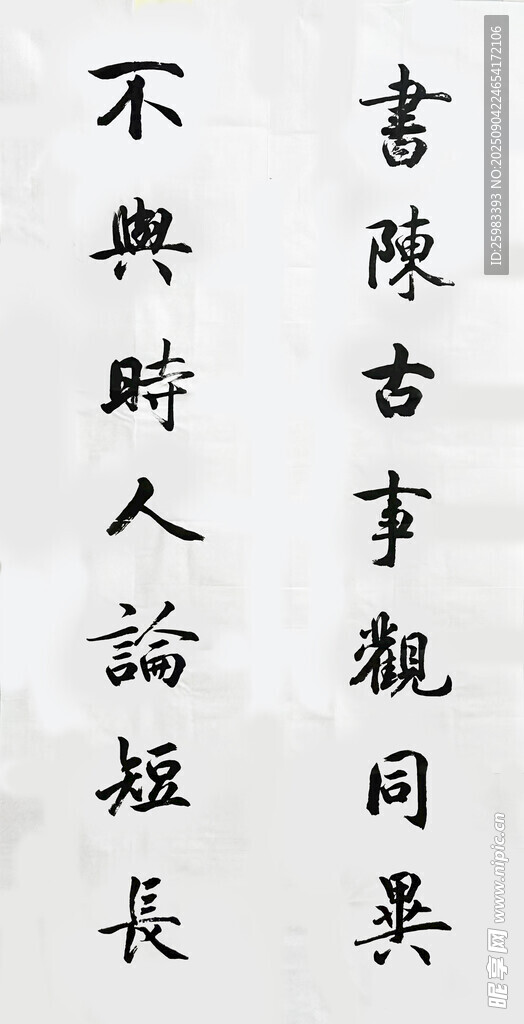 書陳古事觀同異
不與時人論短長
ID:25983393 NO:20250904224654172106
昵享网 www.nipic.cn